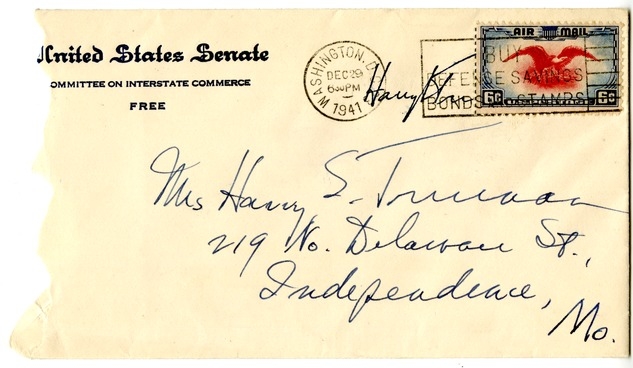 United States Senate
COMMITTEE ON INTERSTATE COMMERCE
FREE
WASHINGTON, D.
DEC 29
6 30 PM
1941
BUY
DEFENSE SAVINGS
BONDS STAMPS
AIR MAIL
6¢ 6¢
Harry
Mrs Harry S. Truman
219 No. Delaware St.,
Independence,
Mo.